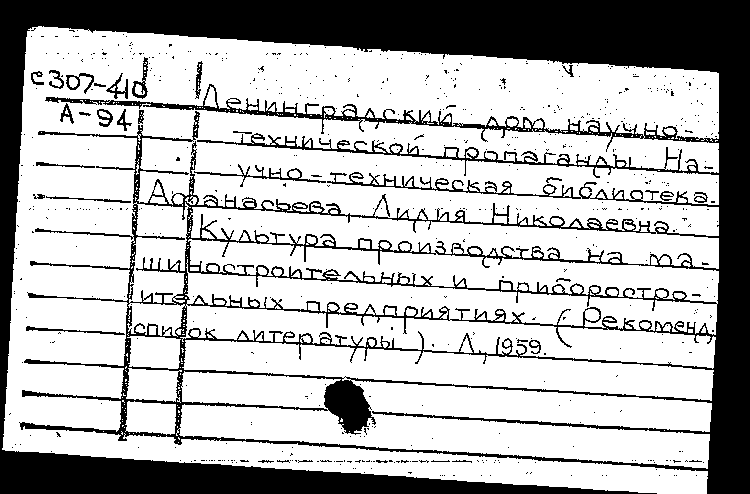 с307-410
А-94
Ленинградский дом научно-
технической пропаганды. На-
учно-техническая библиотека.
Афанасьева, Лидия Николаевна.
Культура производства на ма-
шиностроительных и приборостро-
ительных предприятиях. (Рекоменд.
список литературы). Л., 1959.